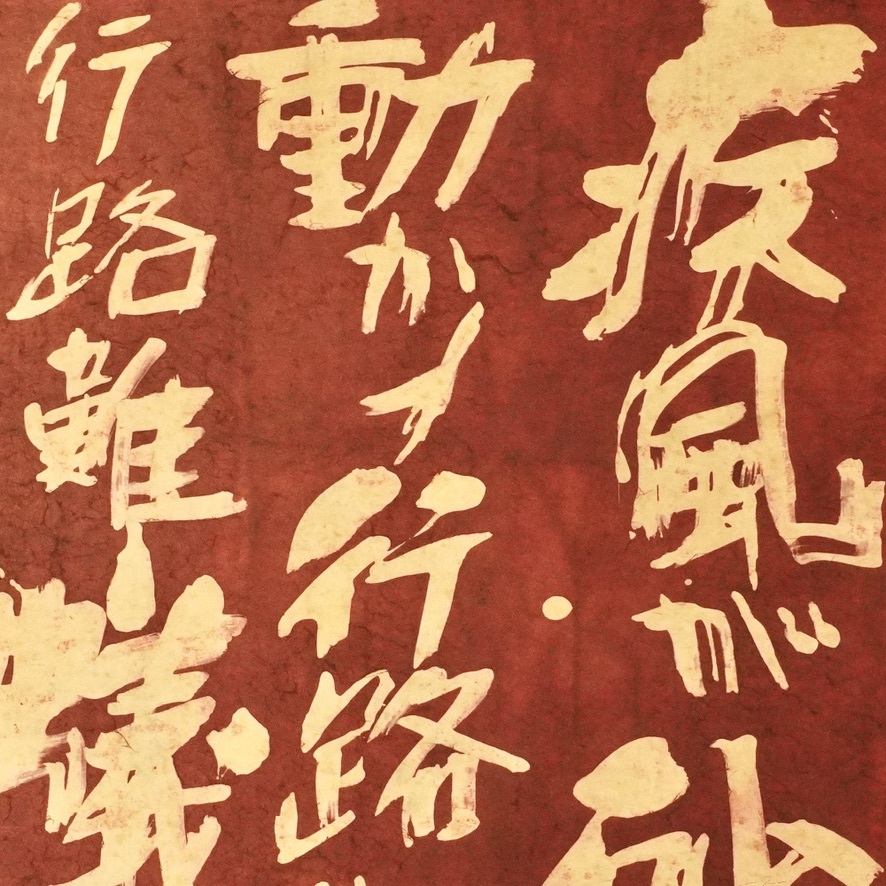 疾風が
動かす行路
行路難